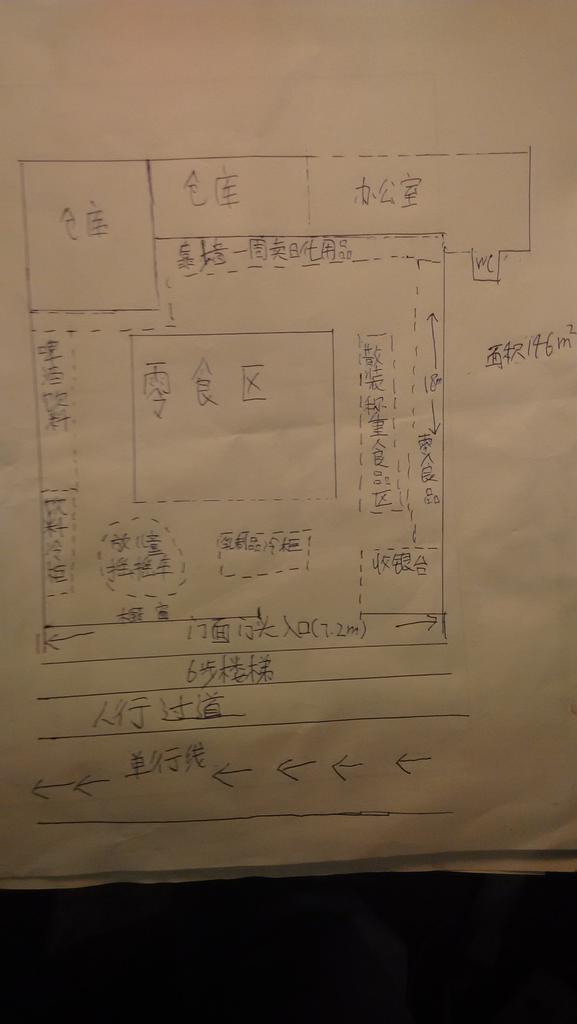 仓库
仓库
办公室
靠墙一周卖日化用品
WC
面积146m²
啤酒饮料
零食区
散装称重食品区
18m
零食品
饮料冷柜
放儿童摇摇车
乳制品冷柜
收银台
门面门头入口(7.2m)
6步楼梯
人行过道
单行线